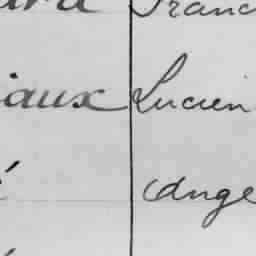 Franc
iaux Lucien
é Ange